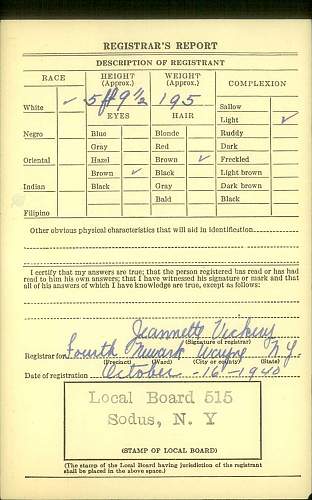 REGISTRAR'S REPORT
DESCRIPTION OF REGISTRANT
RACE HEIGHT (Approx.) WEIGHT (Approx.) COMPLEXION
5 ft 9 1/2 195
EYES HAIR
White ✓ Sallow
Light ✓
Negro Blue Blonde Ruddy
Gray Red Dark
Oriental Hazel Brown ✓ Freckled
Brown ✓ Black Light brown
Indian Black Gray Dark brown
Bald Black
Filipino
Other obvious physical characteristics that will aid in identification
I certify that my answers are true; that the person registered has read or has had
read to him his own answers; that I have witnessed his signature or mark and that
all of his answers of which I have knowledge are true, except as follows:
Jeannette Vickery
(Signature of registrar)
Registrar for Fourth Newark Wayne N.Y.
(Precinct) (Ward) (City or county) (State)
Date of registration October - 16 - 1940
Local Board 515
Sodus, N. Y
(STAMP OF LOCAL BOARD)
(The stamp of the Local Board having jurisdiction of the registrant
shall be placed in the above space.)